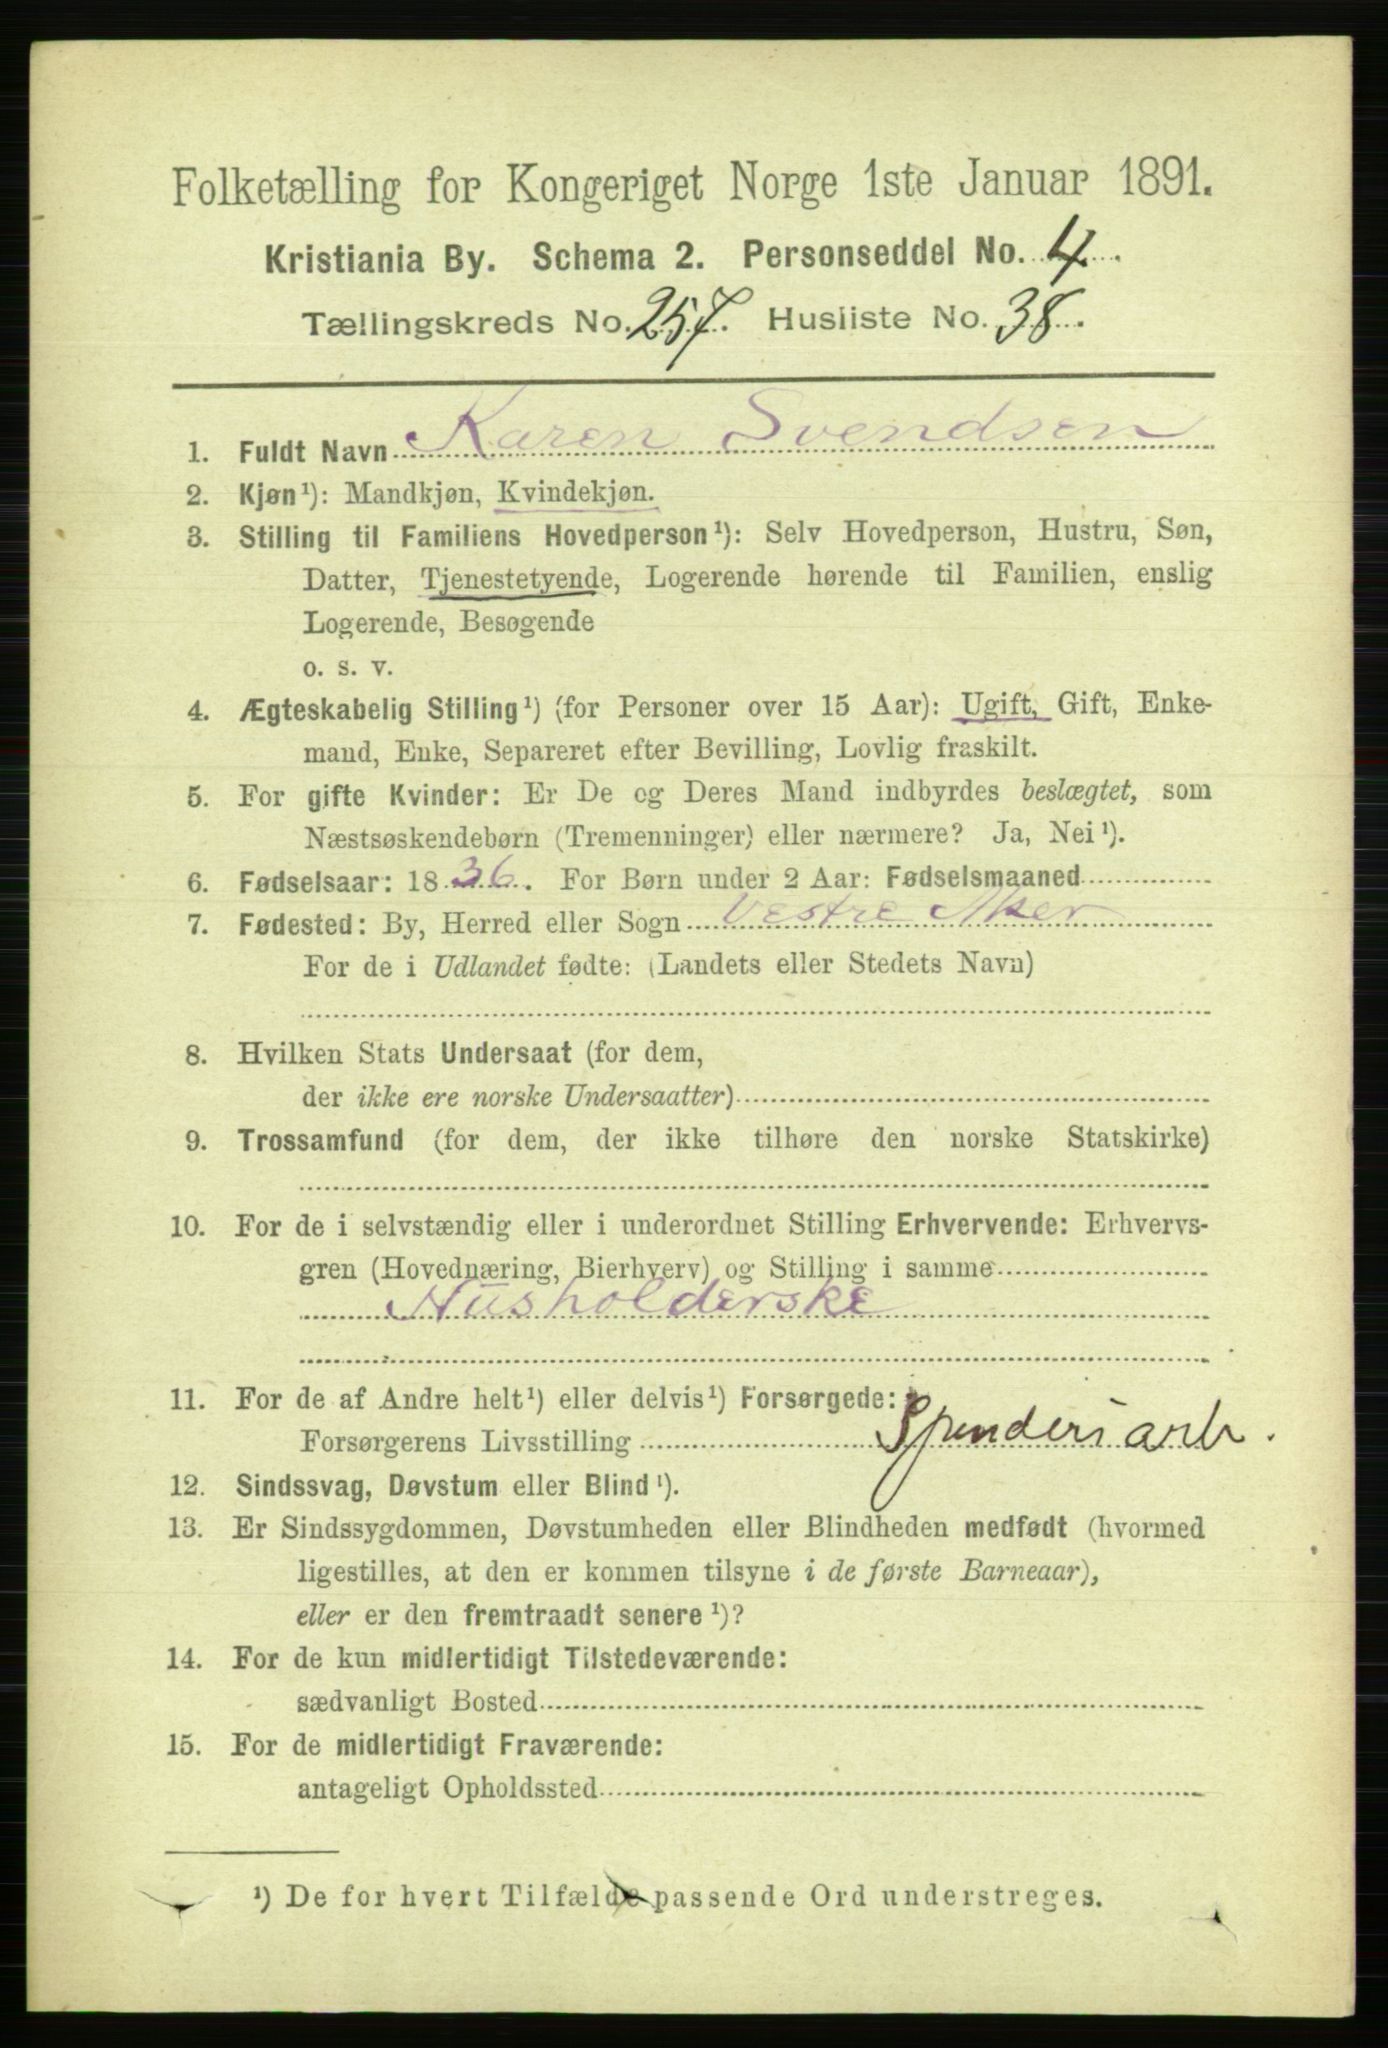 Folketælling for Kongeriget Norge 1ste Januar 1891.
Kristiania By. Schema 2. Personseddel No. 4.
Tællingskreds No. 257. Husliste No. 38.
1. Fuldt Navn Karen Svendsen
2. Kjøn¹): Mandkjøn, Kvindekjøn.
3. Stilling til Familiens Hovedperson¹): Selv Hovedperson, Hustru, Søn,
Datter, Tjenestetyende, Logerende hørende til Familien, enslig
Logerende, Besøgende
o. s. v.
4. Ægteskabelig Stilling¹) (for Personer over 15 Aar): Ugift, Gift, Enke-
mand, Enke, Separeret efter Bevilling, Lovlig fraskilt.
5. For gifte Kvinder: Er De og Deres Mand indbyrdes beslægtet, som
Næstsøskendebørn (Tremenninger) eller nærmere? Ja, Nei¹).
6. Fødselsaar: 1836. For Børn under 2 Aar: Fødselsmaaned
7. Fødested: By, Herred eller Sogn Vestre Aker
For de i Udlandet fødte: (Landets eller Stedets Navn)
8. Hvilken Stats Undersaat (for dem,
der ikke ere norske Undersaatter)
9. Trossamfund (for dem, der ikke tilhøre den norske Statskirke)
10. For de i selvstændig eller i underordnet Stilling Erhvervende: Erhvervs-
gren (Hovednæring, Bierhverv) og Stilling i samme
Husholderske
11. For de af Andre helt¹) eller delvis¹) Forsørgede:
Forsørgerens Livsstilling arb.
12. Sindssvag, Døvstum eller Blind¹).
13. Er Sindssygdommen, Døvstumheden eller Blindheden medfødt (hvormed
ligestilles, at den er kommen tilsyne i de første Barneaar),
eller er den fremtraadt senere¹)?
14. For de kun midlertidigt Tilstedeværende:
sædvanligt Bosted
15. For de midlertidigt Fraværende:
antageligt Opholdssted
¹) De for hvert Tilfælde passende Ord understreges.